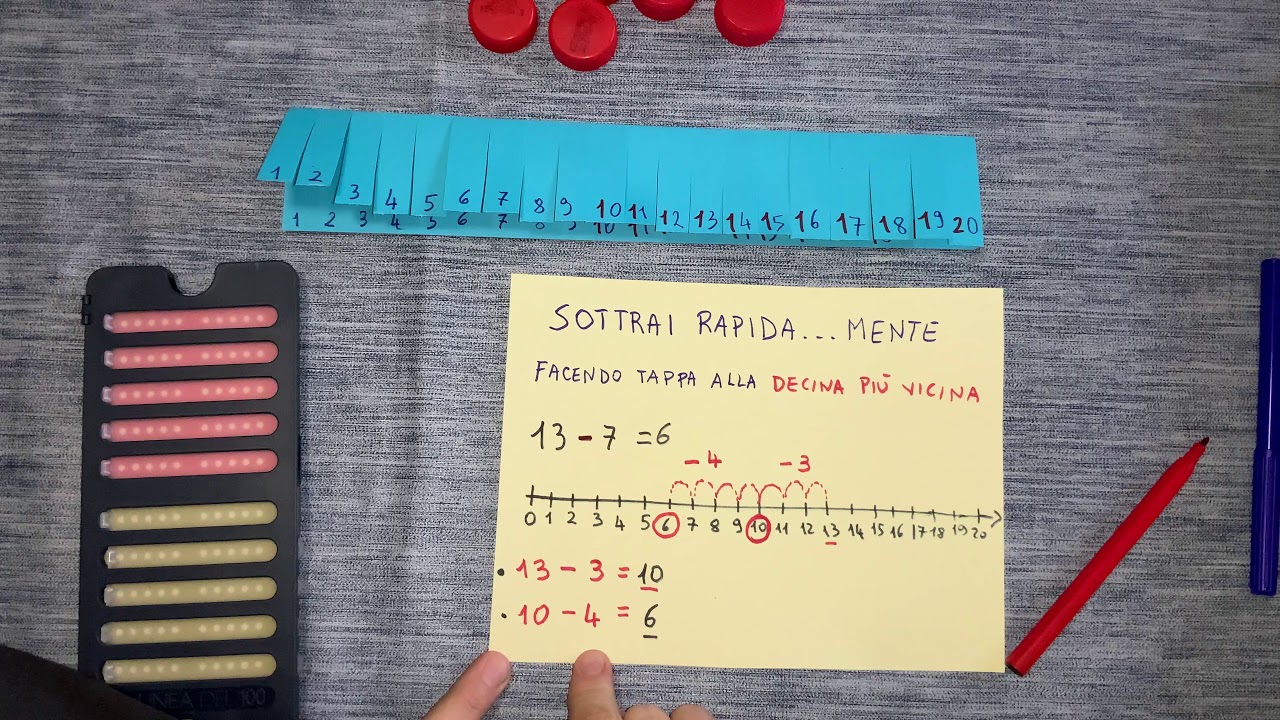 1 2 3 4 5 6 7 8 9 10 11 12 13 14 15 16 17 18 19 20
1 2 3 4 5 6 7 8 9 10 11
SOTTRAI RAPIDA...MENTE
FACENDO TAPPA ALLA DECINA PIÙ VICINA
13 - 7 = 6
-4 -3
0 1 2 3 4 5 6 7 8 9 10 11 12 13 14 15 16 17 18 19 20
• 13 - 3 = 10
• 10 - 4 = 6
LINEA DEL 100